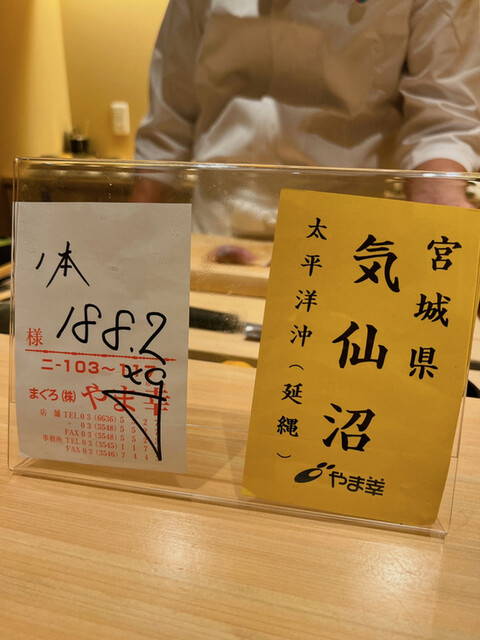 1本
188.2
kg
様
ニ-103~117
まぐろ(株)やま幸
店舗 TEL 03 (6636) 5
FAX 03 (5548) 5
事務所 TEL 03 (3545) 1
FAX 03 (3546) 7
宮城県
気仙沼
太平洋沖(延縄)
やま幸